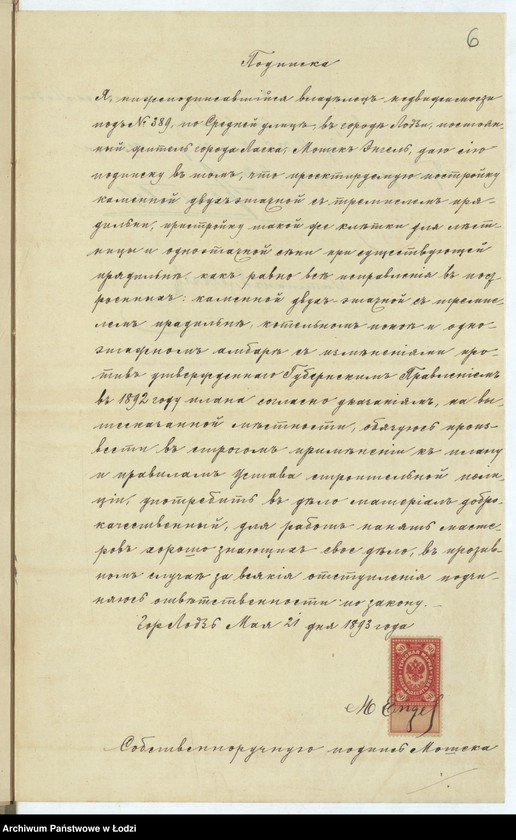 6
Подписка
Я, нижеподписавшійся владѣлецъ недвижимости
подъ № 389, по Средней улицѣ, въ городѣ Лодзи, постоян-
ный житель города Ласка, Мошекъ Энгель, даю сію
подписку въ томъ, что проектируемую постройку
каменной двухъэтажной съ тремпелемъ пря-
дильни, пристройку такой же клѣтки для лѣст-
ницы и одноэтажной сѣни при существующей
прядильнѣ, какъ равно всѣ исправленія въ пос-
троенныхъ: каменной двухъ-этажной съ тремпе-
лемъ прядильнѣ, котельномъ покоѣ и одно-
этажномъ амбарѣ съ измѣненіями про-
тивъ утвержденнаго Губернскимъ Правленіемъ
въ 1892 году плана согласно указаніямъ, на вы-
шесказанной мѣстности, обязуюсь произ-
вести въ строгомъ примѣненіи къ плану
и правиламъ Устава строительной поли-
ціи, употребить въ дѣло матеріалъ добро-
качественный, для работъ нанять масте-
ровъ хорошо знающихъ свое дѣло, въ против-
номъ случаѣ за всякія отступленія подчи-
няюсь отвѣтственности по закону.
Гор. Лодзь Мая 21 дня 1893 года
M Engel
Собственноручную подпись Мошека
Archiwum Państwowe w Łodzi